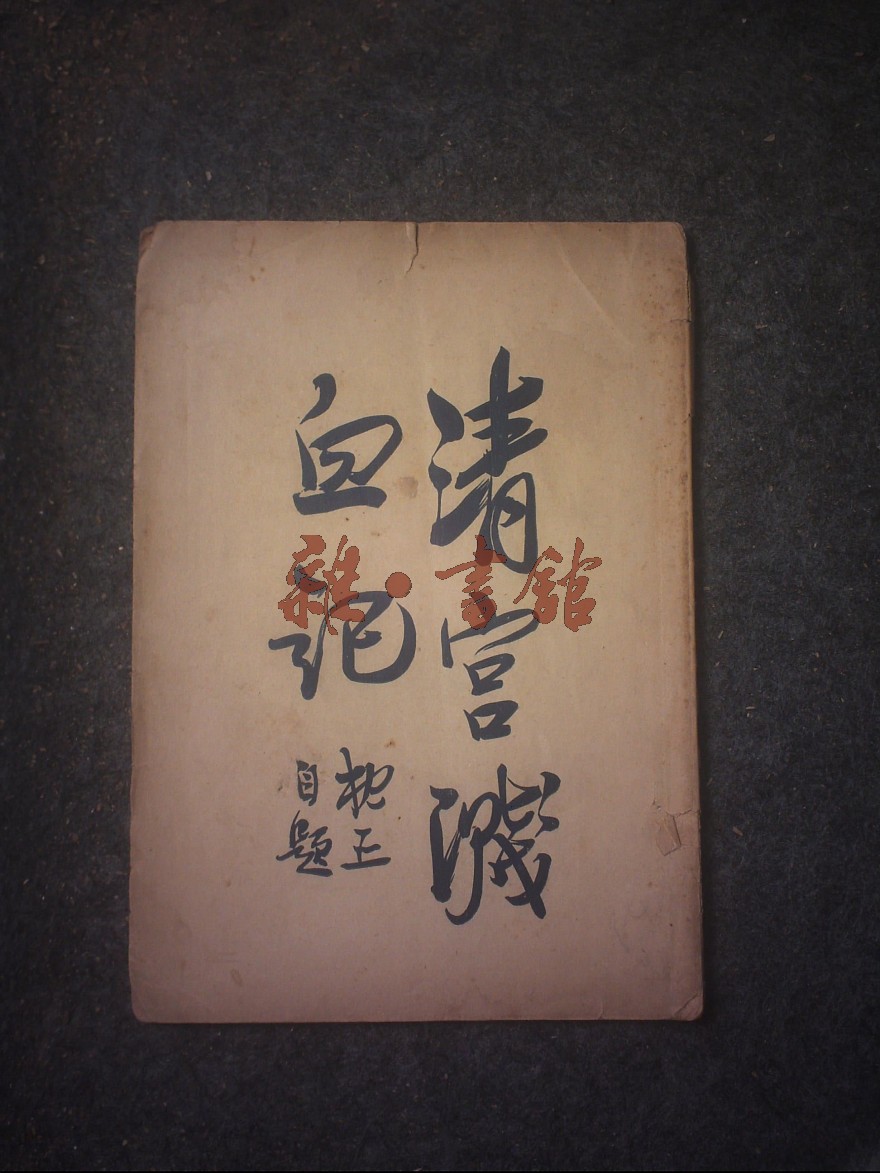 清宮濺
血記
枕正
自題
雜·書館